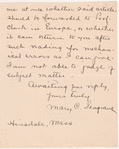 me at once whether said article
should be forwarded to Prof.
Clark in Europe, or whether
it can return to you after
such reading for mechan-
ical errors as I can give.
I am not able to judge of
subject matter.
Awaiting your reply,
Yours truly
Mary C.
Hinsdale, Mass